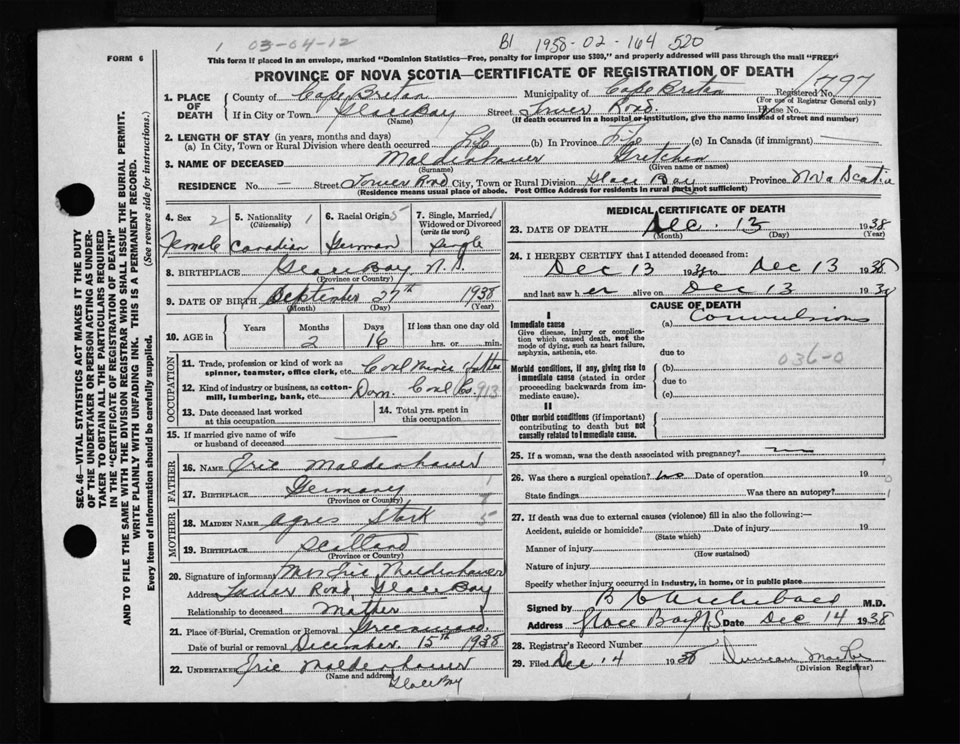 1 03-04-12
B1 1938-02-164 520
FORM 6
This form if placed in an envelope, marked "Dominion Statistics—Free, penalty for improper use $300," and properly addressed will pass through the mail "FREE"
PROVINCE OF NOVA SCOTIA—CERTIFICATE OF REGISTRATION OF DEATH
1797
1. PLACE OF DEATH County of Cape Breton Municipality of Cape Breton Registered No.
(For use of Registrar General only)
If in City or Town Glace Bay Street Tower Road House No.
(Name) (If death occurred in a hospital or institution, give the name instead of street and number)
2. LENGTH OF STAY (in years, months and days)
(a) In City, Town or Rural Division where death occurred Life (b) In Province Life (c) In Canada (if immigrant) —
3. NAME OF DECEASED Moldenhauer Gretchen
(Surname) (Given name or names)
RESIDENCE No. — Street Tower Road City, Town or Rural Division Glace Bay Province Nova Scotia
(Residence means usual place of abode. Post Office Address for residents in rural parts not sufficient)
4. Sex 2 Female
5. Nationality (Citizenship) 1 Canadian
6. Racial Origin 5 German
7. Single, Married, Widowed or Divorced (write the word) 1 Single
8. BIRTHPLACE Glace Bay N.S.
(Province or Country)
9. DATE OF BIRTH September 27th 1938
(Month) (Day) (Year)
10. AGE in Years Months 2 Days 16 If less than one day old hrs. or min.
OCCUPATION
11. Trade, profession or kind of work as spinner, teamster, office clerk, etc. Coal Miner father
12. Kind of industry or business, as cotton-mill, lumbering, bank, etc. Dom. Coal Co. 913
13. Date deceased last worked at this occupation
14. Total yrs. spent in this occupation
15. If married give name of wife or husband of deceased —
FATHER
16. NAME Eric Moldenhauer
17. BIRTHPLACE Germany
(Province or Country)
MOTHER
18. MAIDEN NAME Agnes Stark 5
19. BIRTHPLACE Scotland
(Province or Country)
20. Signature of informant Mrs Eric Moldenhauer
Address Tower Road, Glace Bay
Relationship to deceased Mother
21. Place of Burial, Cremation or Removal Greenwood
Date of burial or removal December 15th 1938
22. UNDERTAKER Eric Moldenhauer
(Name and address)
Glace Bay
MEDICAL CERTIFICATE OF DEATH
23. DATE OF DEATH Dec. 13 1938
(Month) (Day) (Year)
24. I HEREBY CERTIFY that I attended deceased from:
Dec 13 1938 to Dec 13 1938
and last saw her alive on Dec 13 1938
CAUSE OF DEATH
I
Immediate cause (a) Convulsions
Give disease, injury or complication which caused death, not the mode of dying, such as heart failure, asphyxia, asthenia, etc.
due to
036-0
Morbid conditions, if any, giving rise to immediate cause (stated in order proceeding backwards from immediate cause).
(b)
due to
(c)
II
Other morbid conditions (if important) contributing to death but not causally related to immediate cause.
25. If a woman, was the death associated with pregnancy?
26. Was there a surgical operation? no Date of operation 19
State findings Was there an autopsy?
27. If death was due to external causes (violence) fill in also the following:—
Accident, suicide or homicide? Date of injury 19
(State which)
Manner of injury
(How sustained)
Nature of injury
Specify whether injury occurred in industry, in home, or in public place
Signed by B C Archibald M.D.
Address Glace Bay N.S. Date Dec 14 1938
28. Registrar's Record Number
29. Filed Dec 14 1938 Duncan
(Division Registrar)
SEC. 46—VITAL STATISTICS ACT MAKES IT THE DUTY
OF THE UNDERTAKER OR PERSON ACTING AS UNDER-
TAKER TO OBTAIN ALL THE PARTICULARS REQUIRED
IN THE "CERTIFICATE OF REGISTRATION OF DEATH"
AND TO FILE THE SAME WITH THE DIVISION REGISTRAR WHO SHALL ISSUE THE BURIAL PERMIT.
WRITE PLAINLY WITH UNFADING INK. THIS IS A PERMANENT RECORD.
Every item of Information should be carefully supplied. (See reverse side for instructions.)